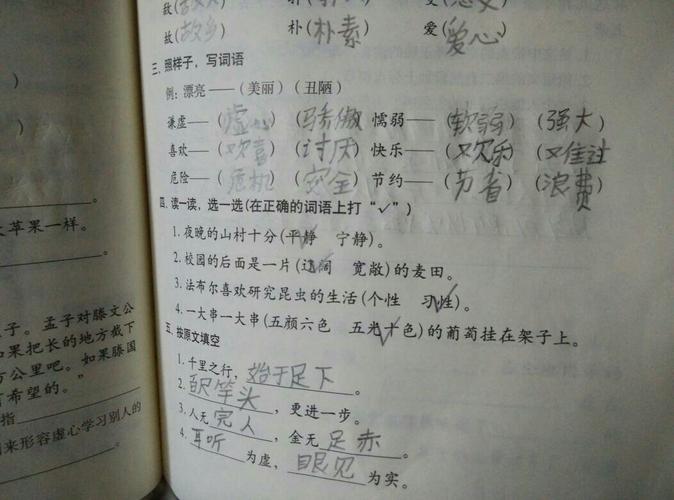 故(故乡) 朴(朴素) 爱(爱心)
三、照样子，写词语
例：漂亮——(美丽) (丑陋)
谦虚——(虚心) (骄傲) 懦弱——(软弱) (强大)
喜欢——(欢喜) (讨厌) 快乐——(欢乐) (难过)
危险——(危机) (安全) 节约——(节省) (浪费)
四、读一读，选一选(在正确的词语上打“✓”)
1.夜晚的山村十分(平静 宁静)。
2.校园的后面是一片(辽阔 宽敞)的麦田。
3.法布尔喜欢研究昆虫的生活(个性 习性)。
4.一大串一大串(五颜六色 五光十色)的葡萄挂在架子上。
五、按原文填空
1.千里之行，始于足下。
2.百尺竿头，更进一步。
3.人无完人，金无足赤。
4.耳听为虚，眼见为实。
苹果一样。
子。孟子对滕文公
果把长的地方截下
方公里吧。如果滕国
希望的。”
指
来形容虚心学习别人的